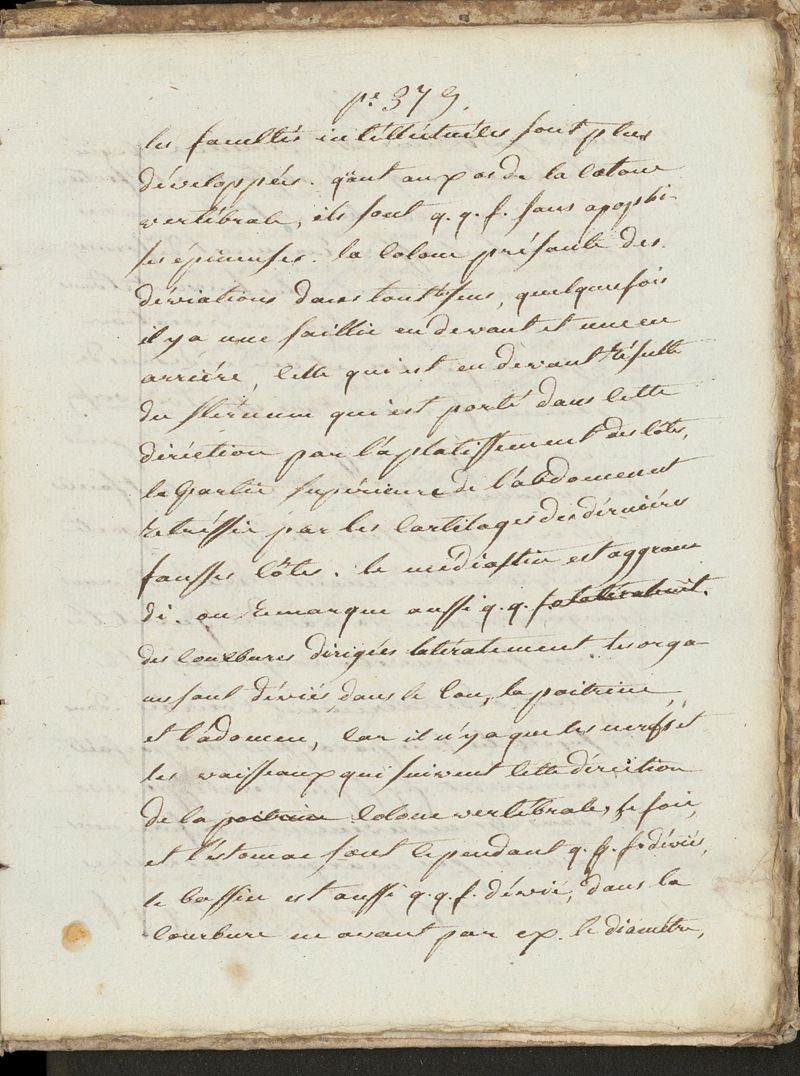 p.e 379.
les facultés intéllectuéles sont plus
développées. qant aux os de la colone
vertébrale, ils sont q.q.f. sans apophi-
ses épineuses. la colone présente des
déviations dans tout les sens, quelquesfois
il y a une saillie en devant et une en
arriére, celle qui est en devant résulte
du stérnum qui est porté dans cette
diréction par l'aplatissement des côtes,
la partie supérieure de l'abdomen est
retréssie par les cartilages des dérniéres
fausses côtes. le médiastin est aggran
di. on remarque aussi q.q.f.
des courbures dirigées latéralement les orga
nes sont déviés dans le cou, la poitrine
et l'ádomen, car il n'y a que les nerfs et
les vaisseaux qui suivent cette diréction
de la poitrine colone vertébrale, le foie,
et l'éstomac sont cependant q.q.f. déviés,
le bassin est aussi q.q.f. dévié, dans la
courbure en avant par ex. le diamétre,